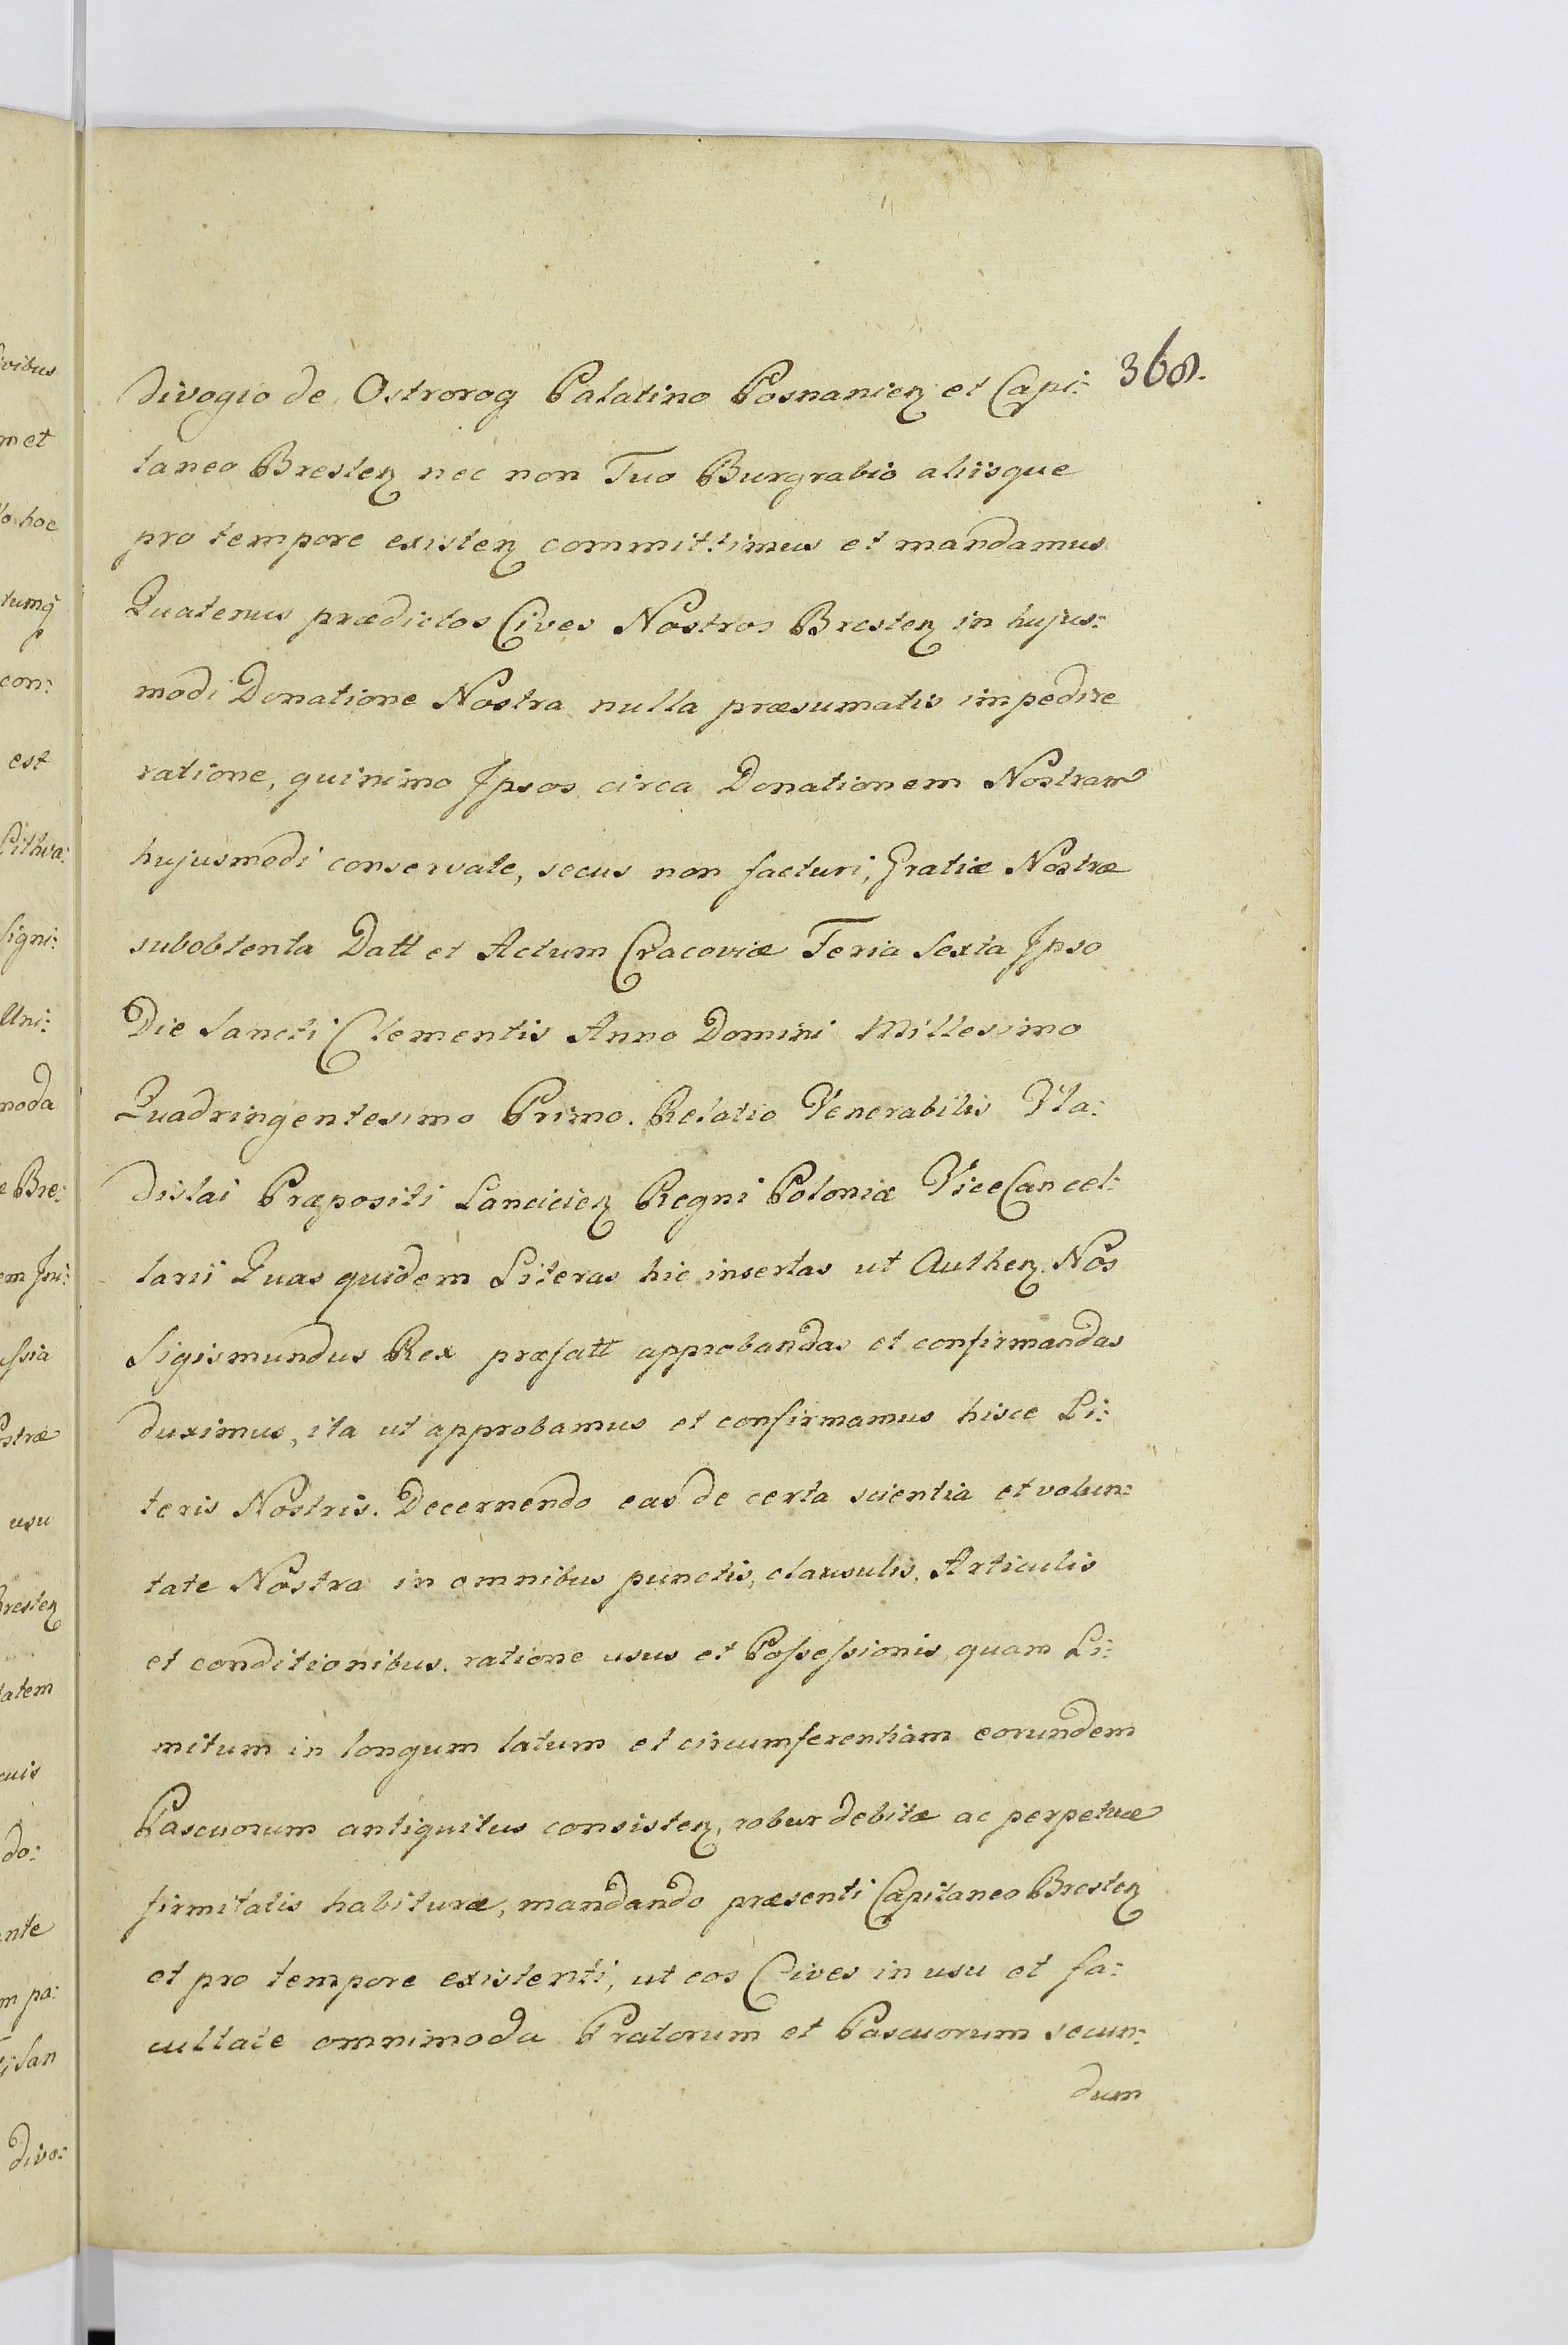 368.
divogio de Ostrorog Palatino Posnanien et Capi:
taneo Bresten nec non Tuo Burgrabio aliisque
pro tempore existen committimus et mandamus
Quatenus prædictos Cives Nostros Bresten in hujus:
modi Donatione Nostra nulla præsumatis impedire
ratione, quinimo Ipsos circa Donationem Nostram
hujusmodi conservate, secus non facturi, Gratiæ Nostræ
subobtenta Datt et Actum Cracoviæ Feria Sexta Ipso
Die Sancti Clementis Anno Domini Millesimo
Quadringentesimo Primo. Relatio Venerabilis Vla:
dislai Præpositi Lancicien Regni Poloniæ ViceCancel:
larii Quas quidem Literas hic insertas ut Authen. Nos
Sigismundus Rex præfatt approbandas et confirmandas
duximus, ita ut approbamus et confirmamus hisce Li:
teris Nostris. Decernendo eas de certa scientia et volun:
tate Nostra in omnibus punctis, clausulis, Articulis
et conditionibus. ratione usus et Possessionis, quam Li:
mitum in longum latum et circumferentiam eorundem
Pascuorum antiquitus consisten, robur debitæ ac perpetuæ
firmitatis habituræ, mandando præsenti Capitaneo Bresten
et pro tempore existenti, ut eos Cives in usu et fa:
cultate omnimoda Pratorum et Pascuorum secun:
dum
met
hoc
con:
est
Signi:
Uni:
moda
Bre:
usu
Bresten
do:
pa:
San
divo: